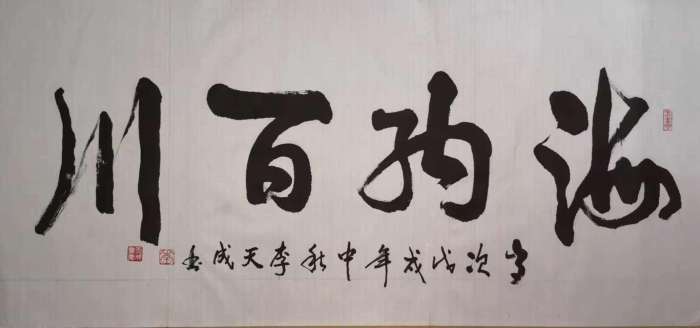 海纳百川
岁次戊戌年中秋李天成书